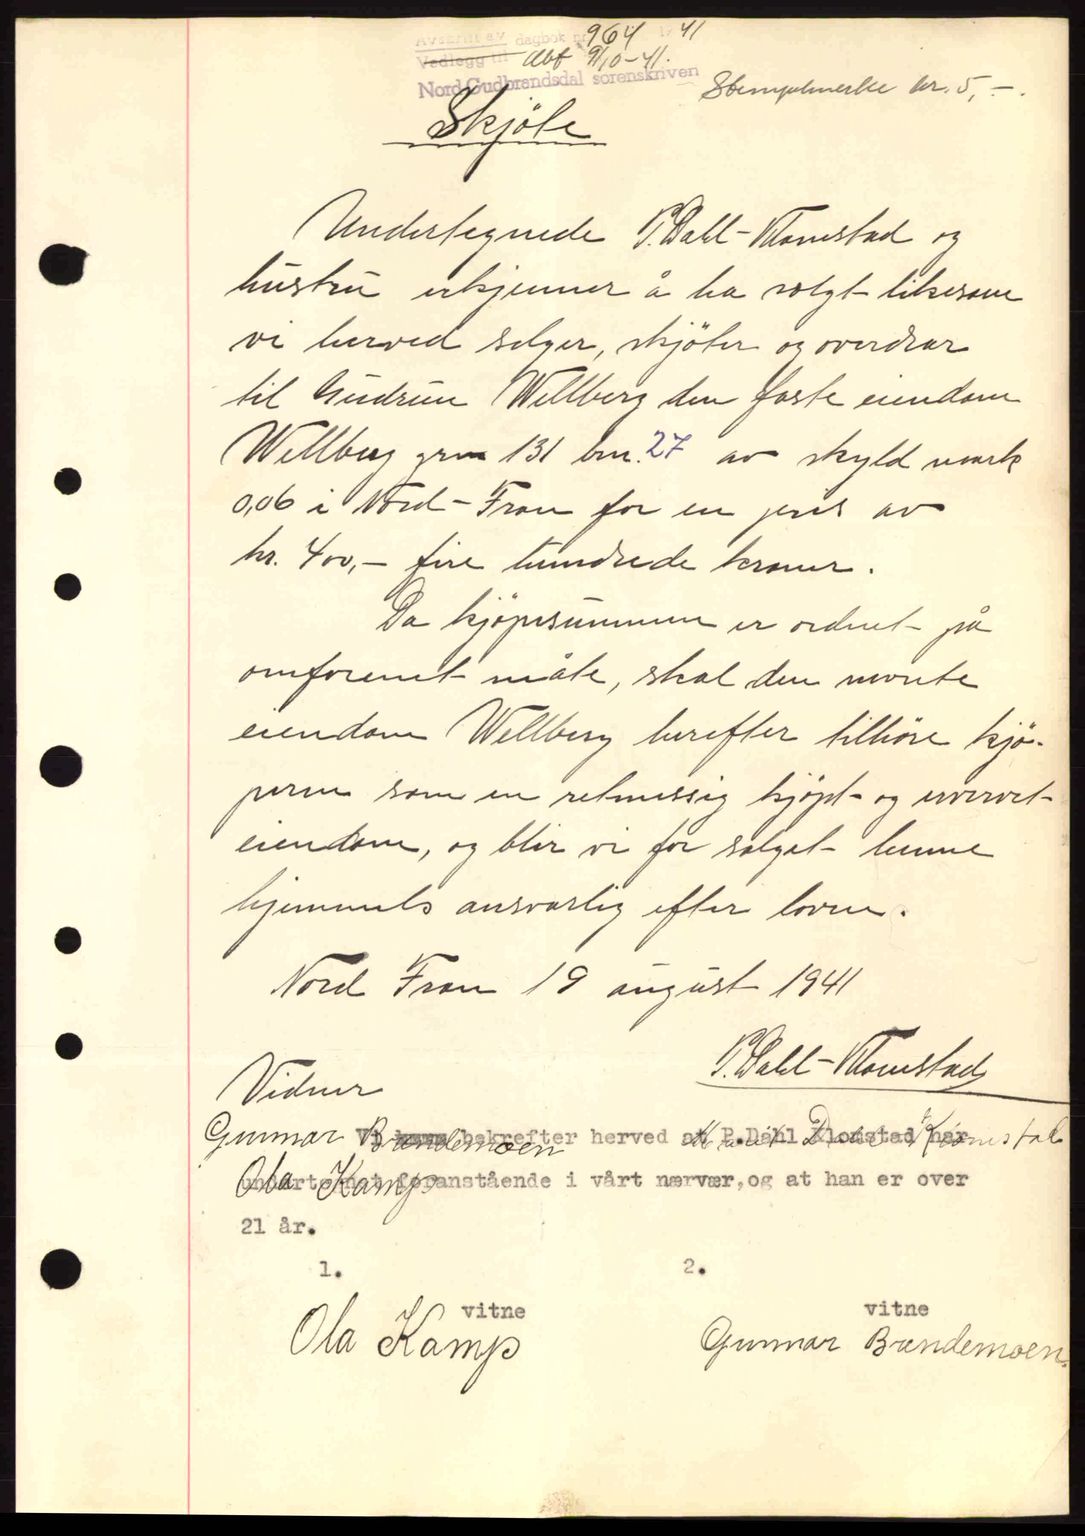 Avskrift av dagbok nr. 964 1941
Vedlegg til dbf 9/10-41.
Nord-Gudbrandsdal sorenskriveri
Stempelmerke kr. 5,-.
Skjöte
Undertegnede P. Dahl-Klomstad og
hustru erkjenner å ha solgt likesom
vi herved selger, skjöter og overdrar
til Gudrun Wellberg den faste eiendom
Wellberg grn 131 bnr. 27 av skyld mark
0,06 i Nord-Fron for en pris av
kr. 400,- fire hundrede kroner.
Da kjöpesummen er ordnet på
omforenet måte, skal den nevnte
eiendom Wellberg herefter tilhöre kjö-
peren som en retmessig kjöpt og ervervet
eiendom, og blir vi for salget henne
hjemmels ansvarlig efter loven.
Nord Fron 19 august 1941
P. Dahl-Klomstad
Vidner
Gunnar Brendemoen Dahl Klomstad
Ola Kamp
Vi bekrefter herved at P.Dahl Klomstad har
undertegnet foranstående i vårt nærvær, og at han er over
21 år.
1. 2.
vitne vitne
Ola Kamp Gunnar Brendemoen.